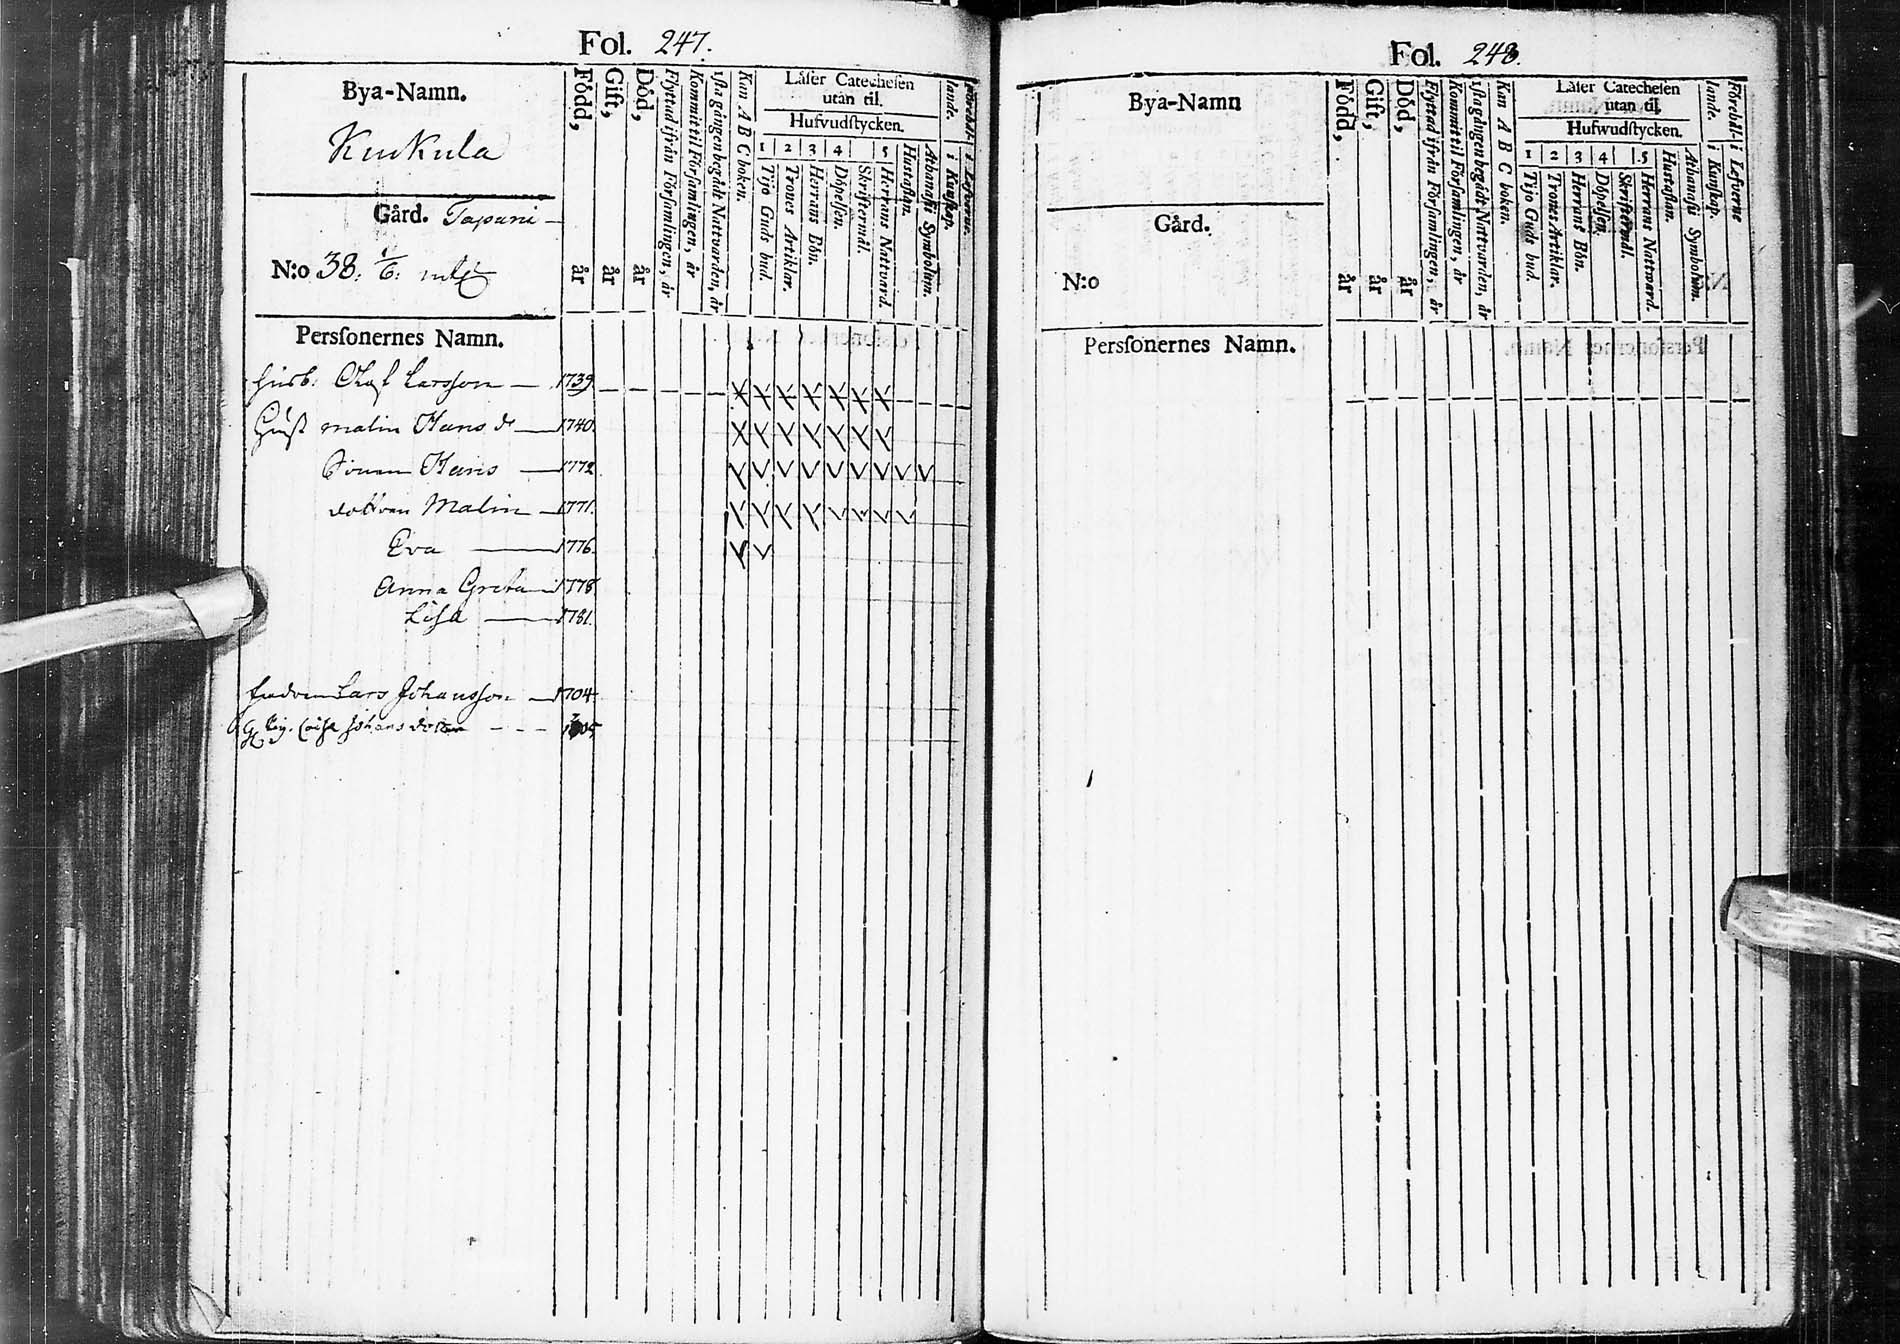 Fol. 247.
Bya-Namn.
Kuukula
Gård. Tapani
N:o 38. 1/6. mtl
Född, år
Gift, år
Död, år
Flyttad ifrån Församlingen, år
Kommit til Församlingen, år
ista gången begådt Nattvarden, år
Kan A B C boken.
Låser Catecheſen
utan til.
Hufvudſtycken.
1 2 3 4 5
Tijo Guds bud.
Trones Artiklar.
Herrans Bön.
Döpelſen.
Skriftermål.
Herrans Nattvard.
Hustaflan.
Athanasii Symbolum.
i Kunſkap.
lande.
i Lefverne.
Perſonernes Namn.
Husb: Olof Larsson — 1739.
Hust malin Hans dr — 1740.
Sonen Hans — 1772
dottren Malin — 1771.
Eva — 1776.
Anna Greta — 1778
Lisa — 1781.
fadren Lars Johansson — 1704
Johans dotter
Fol. 248.
Bya-Namn
Gård.
N:o
Född, år
Gift, år
Död, år
Flyttad ifrån Församlingen, år
Kommit til Församlingen, år
ista gången begådt Nattvarden, år
Kan A B C boken.
Låſer Catecheſen
utan til.
Hufwudſtycken.
1 2 3 4 5
Tijo Guds bud.
Trones Artiklar.
Herrans Bön.
Döpelſen.
Skriftermål.
Herrans Nattvard.
Hustaflan.
Athanasii Symbolum.
i Kunſkap.
lande.
i Lefverne
Perſonernes Namn.